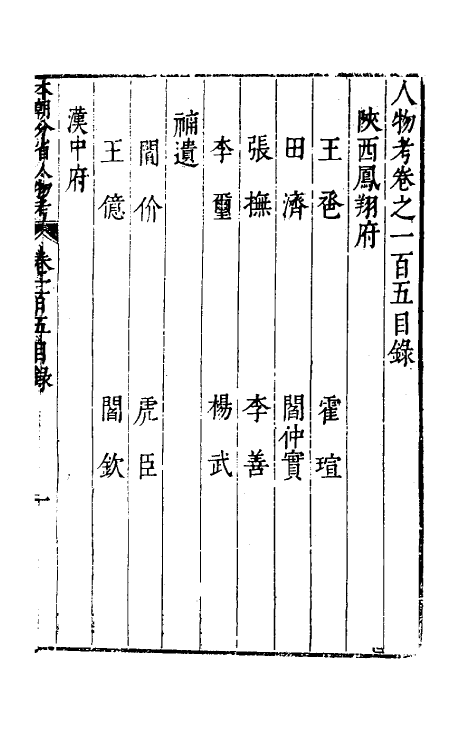 人物考卷之一百五目錄
陝西鳳翔府
王卺 霍瑄
田濟 閻仲實
張撫 李善
李璽 楊武
補遺
閻价 虎臣
王億 閻欽
漢中府
本朝分省人物考 卷之一百五目錄 一